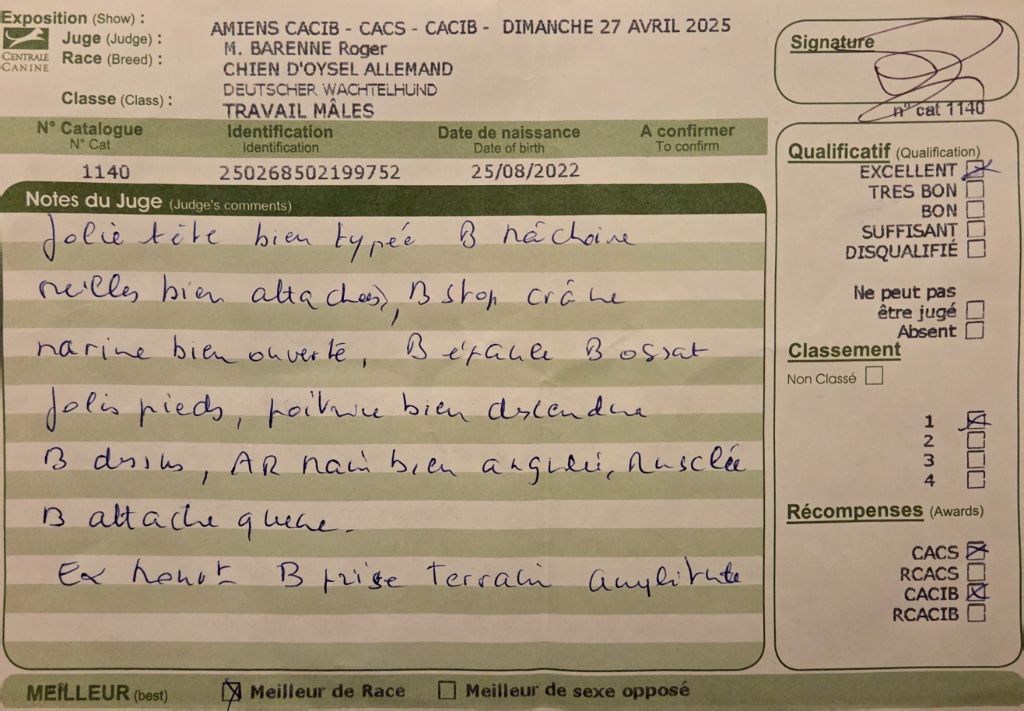 Exposition (Show) : AMIENS CACIB - CACS - CACIB - DIMANCHE 27 AVRIL 2025
CENTRALE CANINE
Juge (Judge) : M. BARENNE Roger
Race (Breed) : CHIEN D'OYSEL ALLEMAND
DEUTSCHER WACHTELHUND
Classe (Class) : TRAVAIL MÂLES
N° Catalogue Identification Date de naissance A confirmer
N° Cat Identification Date of birth To confirm
1140 250268502199752 25/08/2022
Notes du Juge (Judge's comments)
Jolie tête bien typée B mâchoire
oreilles bien attachées, B stop crâne
narine bien ouverte, B épaule B ossat
Jolis pieds, poitrine bien descendue
B dessus, AR main bien angulée, Musclée
B attache queue.
Ex B prise terrain amplitude
MEILLEUR (best) Meilleur de Race Meilleur de sexe opposé
Signature
n° cat 1140
Qualificatif (Qualification)
EXCELLENT
TRES BON
BON
SUFFISANT
DISQUALIFIÉ
Ne peut pas
être jugé
Absent
Classement
Non Classé
1
2
3
4
Récompenses (Awards)
CACS
RCACS
CACIB
RCACIB